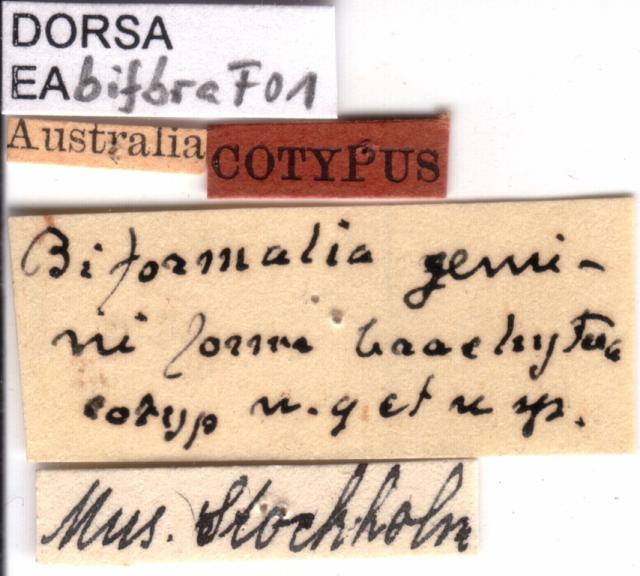 DORSA
EA bifbra F01
Australia
COTYPUS
Biformalia gemi-
ni forma brachytera
cotyp n. g et n sp.
Mus. Stockholm